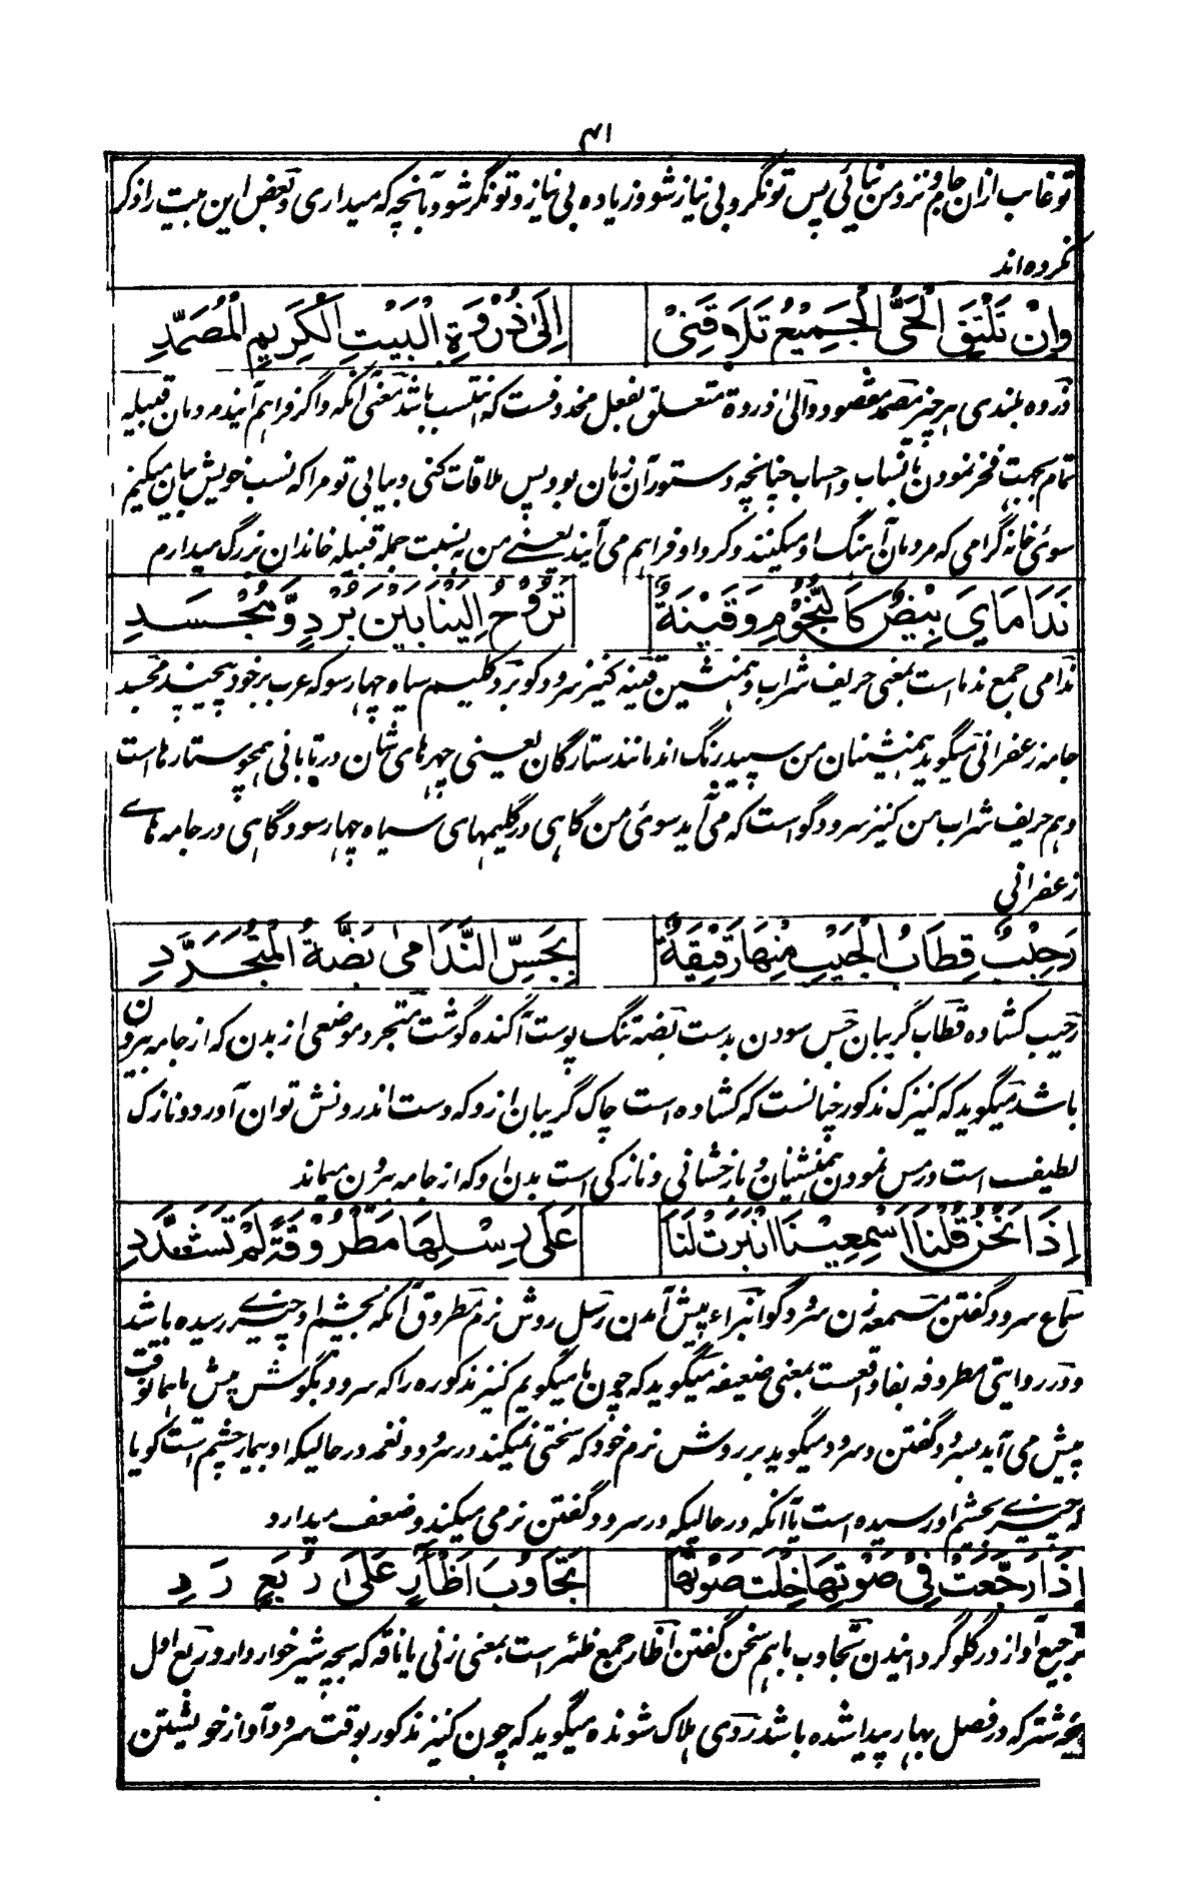 ۴۱
تو غایب ازان جام و نزد من نیائی پس تونگر و بی نیاز شو و زیاده بی نیاز و تونگر شو بآنچه که میداری و بعض این بیت را ذکر
نکرده اند
وَاِنْ تَلْتَقِ الْحَیُّ الْجَمِیْعُ تُلَاقِنِیْ اِلٰی ذُرْوَةِ الْبَیْتِ الْکَرِیْمِ الْمُصَمَّدِ
ذروه بلندی هر چیز مصمد مقصود و الی ذروة متعلق بفعل محذوفست که انتسب باشد معنی آنکه و اگر فراهم آیند مردمان قبیله
تمام بجهت فخر نمودن بانساب و احساب چنانچه دستور آن زمان بود پس ملاقات کنی و بیابی تو مرا که نسب خویش بیان میکنم
سوئ خانه گرامی که مردمان آهنگ او میکنند و گرد او فراهم می آیند یعنے من به نسبت جمله قبیله خاندان بزرگ میدارم
نَدَامَایَ بِیْضٌ کَالنُّجُوْمِ وَقَیْنَةٌ تَرُوْحُ اِلَیْنَا بَیْنَ بُرْدٍ وَّمُجْسَدِ
ندامی جمع ندما است بمعنی حریف شراب و همنشین قینه کنیز سرود گو برد گلیم سیاه چهار سو که عرب بر خود پیچیند مجسد
جامه زعفرانی میگوید همنشینان من سپید رنگ اند مانند ستارگان یعنی چهرهای شان در تابانی همچو ستارها است
و هم حریف شراب من کنیز سرود گو است که می آید سوئ من گاهی در گلیمهای سیاه چهار سو و گاهی در جامه هاے
زعفرانی
رَحِیْبٌ قِطَابُ الْجَیْبِ مِنْهَا رَقِیْقَةٌ بِجَسِّ النَّدَامٰی بَضَّةُ الْمُتَجَرَّدِ
رحیب کشاده قطاب گریبان جس سودن بدست بضه تنگ پوست آگنده گوشت متجرد موضعی از بدن که از جامه بیرون
باشد میگوید که کنیزک مذکور چنانست که کشاده است چاک گریبان ازو که دست اندرونش توان آورد و نازک
لطیف است در مس نمودن همنشینان و بازخشانی و نازکی است بدن او که از جامه برون میماند
اِذَا نَحْنُ قُلْنَا اَسْمِعِیْنَا انْبَرَتْ لَنَا عَلٰی رِسْلِهَا مَطْرُوْقَةً لَمْ تَشَدَّدِ
سماع سرود گفتن مسمعه زن سرود گو انبراء پیش آمدن رسل روش نرم مطروق آنکه بچشم او چیزے رسیده باشد
و در روایتی مطروفه بفا واقعست بمعنی ضعیفه میگوید که چون ما میگویم کنیز مذکوره را که سرود بگو ش پیش ما همانوقت
پیش می آید بسرود گفتن و سرود میگوید بر روش نرم خود که سختی نمیکند در سرود و نغمه در حالیکه او بیمار چشم است گویا
که چیزے بچشم او رسیده است یا آنکه در حالیکه در سرود گفتن نرمی میکند و ضعف میدارد
اِذَا رَجَّعَتْ فِیْ صَوْتِهَا خِلْتَ صَوْتَهَا تَجَاوُبَ اَظْآرٍ عَلٰی رُبَعٍ رَدِ
ترجیع آواز در گلو گردانیدن تجاوب باهم سخن گفتن اظار جمع ظئر است بمعنی زنی یا ناقه که بچه شیر خوار دارد ربع اول
بچه شتر که در فصل بهار پیدا شده باشد ردی هلاک شونده میگوید که چون کنیز مذکور بوقت سرود آواز خویشتن